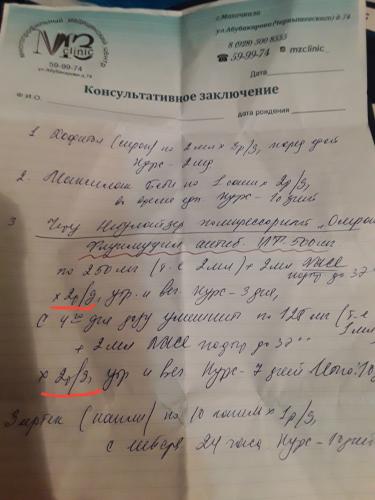 многопрофильный медицинский центр
МЗ
clinic
59-99-74
ул. Абубакарова д, 74
г. Махачкала
ул.Абубакарова (Чернышевского) д 74
8 (928) 500 8555
59-99-74 mzclinic_
Дата
Консультативное заключение
Ф.И.О. дата рождения
1 (сироп) по 2 мл х 2р/з, перед едой
Курс - 2 мд
2. беби по 1 х 2р/з,
во время еды Курс - 10 дней
3 Через Небулайзер компрессорный „Омрон
Флуимуцил антиб. ИТ 500 мг
по 250 мг (т. е 2 мл) + 2 мл
подогр до 37°
х 2р/з, утр. и веч Курс - 3 дня,
С 4го дня дозу уменьшить по 125 мг (т. е
1 мл
+ 2 мл подогр до 37°
х 2р/з, утр и веч Курс - 7 дней Итого: 10
Зиртек (капли) по 10 капель х 1р/з,
24 часа Курс - 10 дней